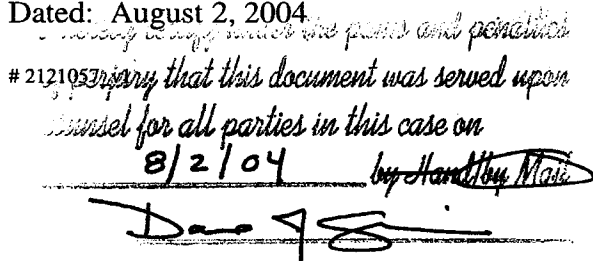 Dated: August 2, 2004
I hereby certify under the pains and penalties
# 2121057 of perjury that this document was served upon
counsel for all parties in this case on
8/2/04 by Hand/by Mail